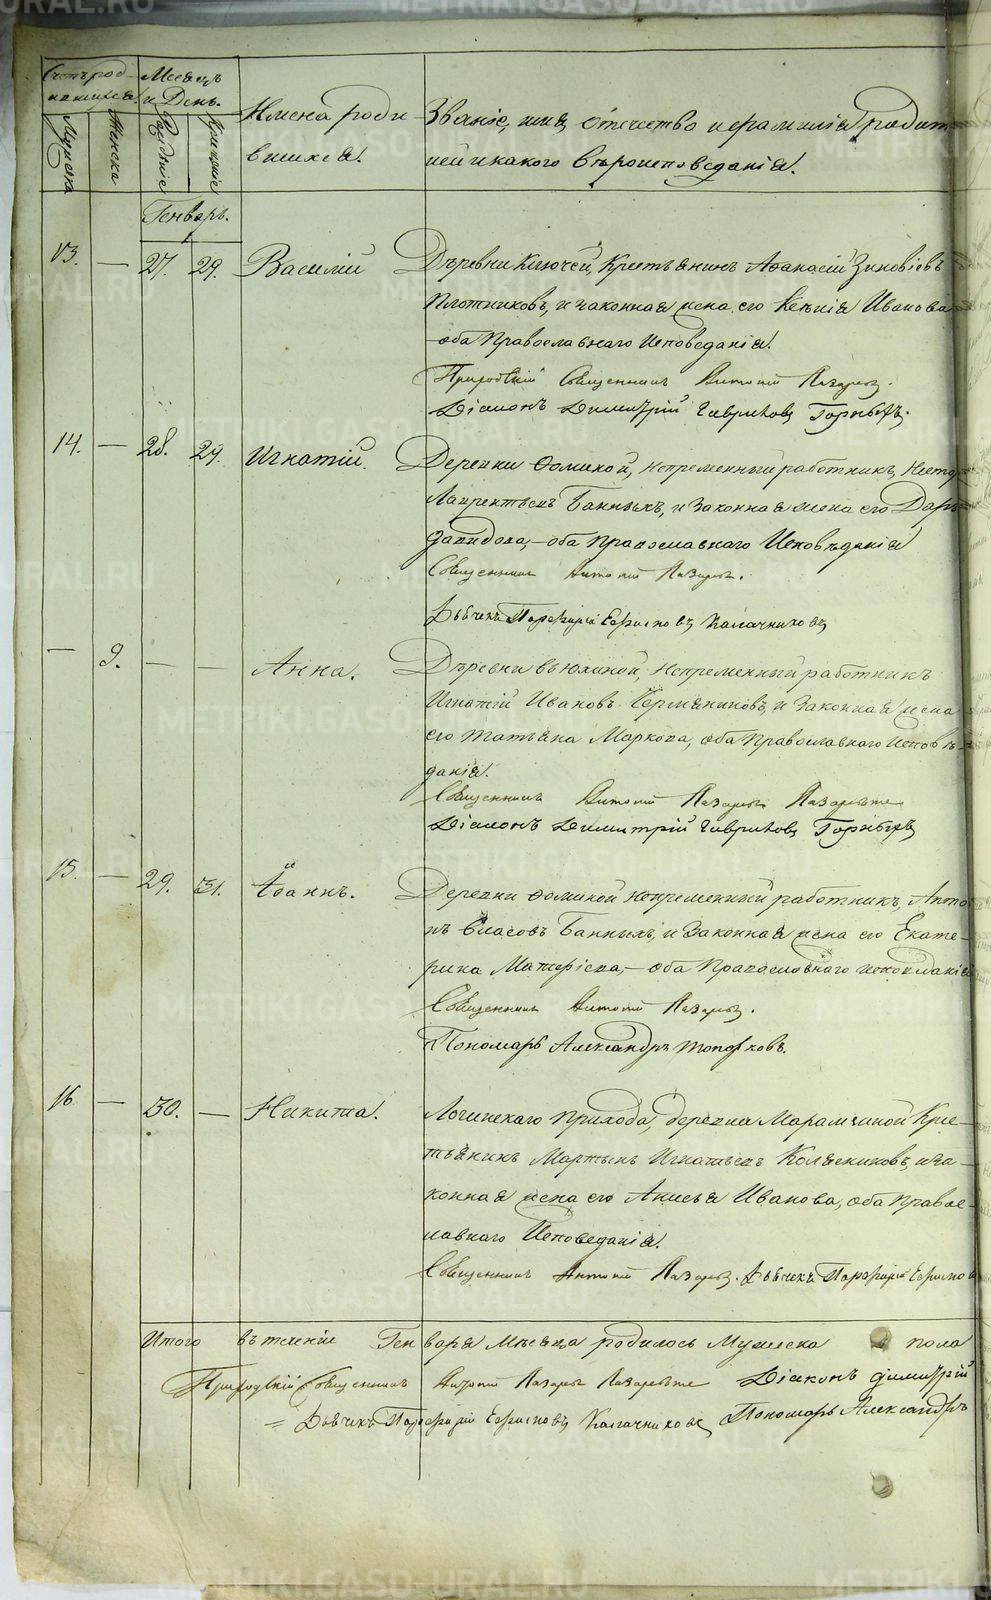 Счетъ род- Месяцъ
и День.
Имена роди Званіе, имя, отечество и фамилія родит
вшихся. лей и какого вѣроисповеданія.
Мужска Женска Рожденіе Крещеніе
Генварь.
13. — 27. 29. Василій Дѣревни Ключей, Крестьянинъ Афанасій Зиновіевъ
Плотниковъ, и законная жена его Ксенія Иванова
оба Православнаго Исповеданія.
Приходскій Священникъ Антоній Лазаревъ.
Діаконъ Димитрій Гавриловъ Горныхъ.
14. — 28. 29. Игнатій. Деревни Фоминой, непременный работникъ, Несто
Лаврентьевъ Банныхъ, и законная жена его Дарь
Давидова, — оба Православнаго Исповѣданія
Священникъ Антоній Лазаревъ.
Дьячекъ Порфирій Калачниковъ
— 9. — — Анна. Дѣревни Вьюхиной, непременный работникъ
Игнатій Ивановъ и законная жена
его Татьяна Маркова, оба Православнаго Исповѣ-
данія.
Священникъ Антоній Лазаревъ
Діаконъ Димитрій Гавриловъ Горныхъ
15. — 29. 31. Іоаннъ. Деревни Фоминой непременный работникъ, Анто
нъ Власовъ Банныхъ, и законная жена его Екате-
рина Матфіева, — оба Православнаго исповѣданія
Священникъ Антоній Лазаревъ.
Пономарь Александръ Топорковъ.
16 — 30. — Никита. Логинскаго прихода, деревни Марамзиной Крес-
тьянинъ Мартынъ Игнатьевъ Колясниковъ, и за-
конная жена его Анисья Иванова, оба Правос-
лавнаго Исповеданія.
Священникъ Антоній Лазаревъ. Дьячекъ Порфирій
Итого въ теченіе Генваря Мѣсяца родилось Мужеска пола
Приходскій Священникъ Антоній Лазаревъ Діаконъ Димитрій
= Дьячекъ Порфирій Калачниковъ Пономарь Александръ
METRIKI.GASO-URAL.RU